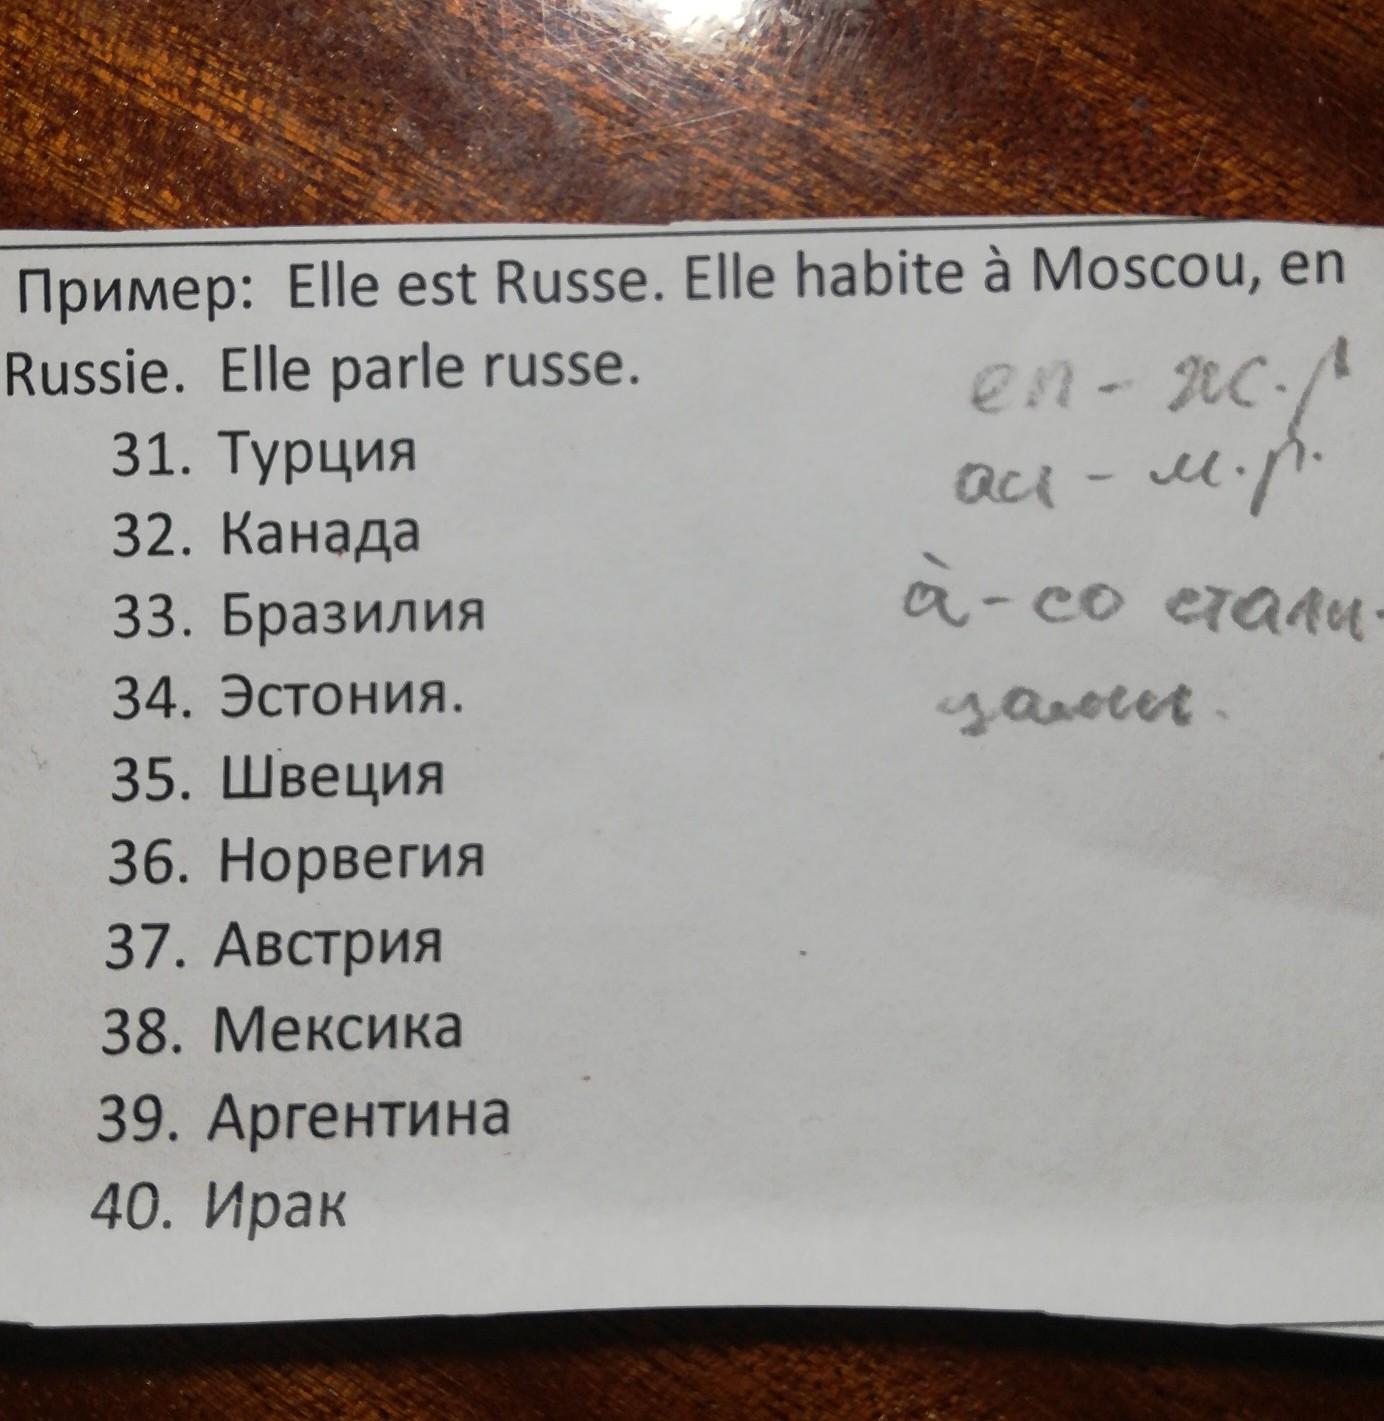 Пример: Elle est Russe. Elle habite à Moscou, en
Russie. Elle parle russe.
en - ж.р
31. Турция
au - м.р.
32. Канада
33. Бразилия
à - со столи-
34. Эстония.
цами.
35. Швеция
36. Норвегия
37. Австрия
38. Мексика
39. Аргентина
40. Ирак